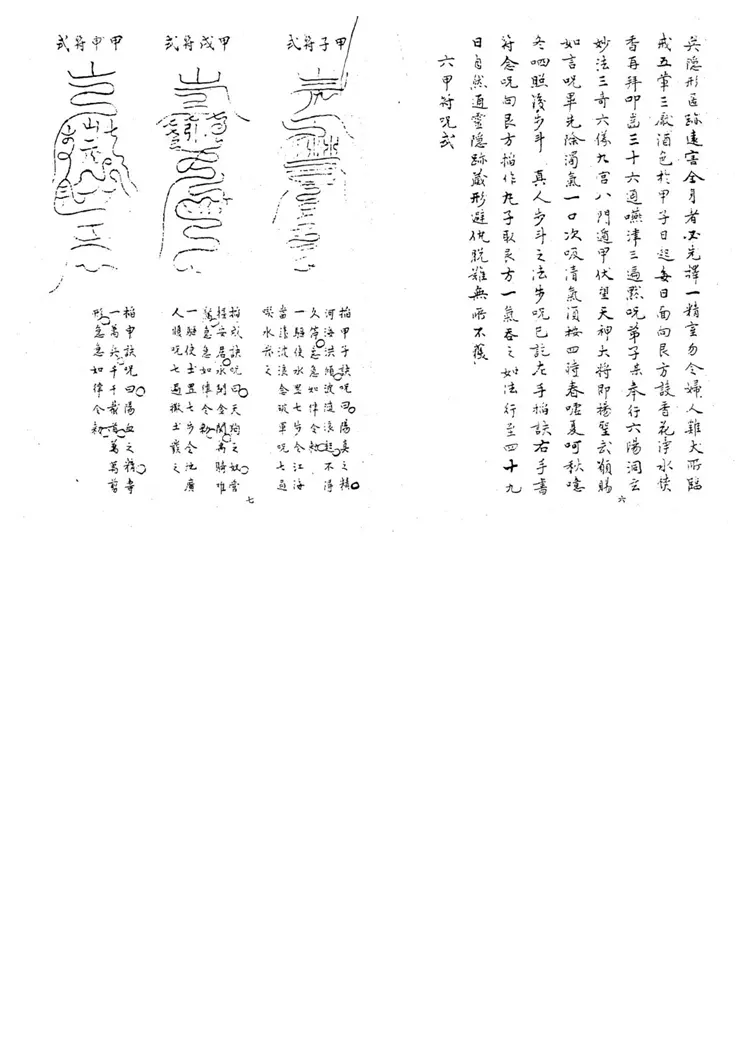 吳隐形匿跡遠害全身者必先擇一精室勿令婦人雞犬所臨
戒五葷三厭酒色於甲子日起每日面向艮方設香花淨水焚
香再拜叩齒三十六通嚥津三遍默呪弟子某奉行六陽洞玄
妙法三奇六儀九宮八門遁甲伏望天神大將即揚聖玄願賜
如言呪畢先除濁氣一口次吸清氣須按四時春噓夏呵秋噫
冬呬照後步斗真人步斗之法步呪已訖左手掐訣右手書
符念呪向艮方掐作九子取艮方一氣吞之如法行至四十九
日自然通靈隱跡藏形避仇脫難無所不獲
六甲符呪式
六
甲子符式
甲戌符式
甲申符式
掐甲子訣呪曰陽真之精
河海洪傾波浪滾起不得
久停急急如律令勅
一驅使水罡七步令江海
當淺波浪念破軍呪七遍
噀水發之
掐戌訣呪曰天狗之奴常
安居水到金開為時唯
急急如律令勅
一驅使土罡七步令地廣
人順呪七遍撒土發之
掐申訣呪曰陽血之精奇
一萬兵千千萬萬
形急急如律令勅
七